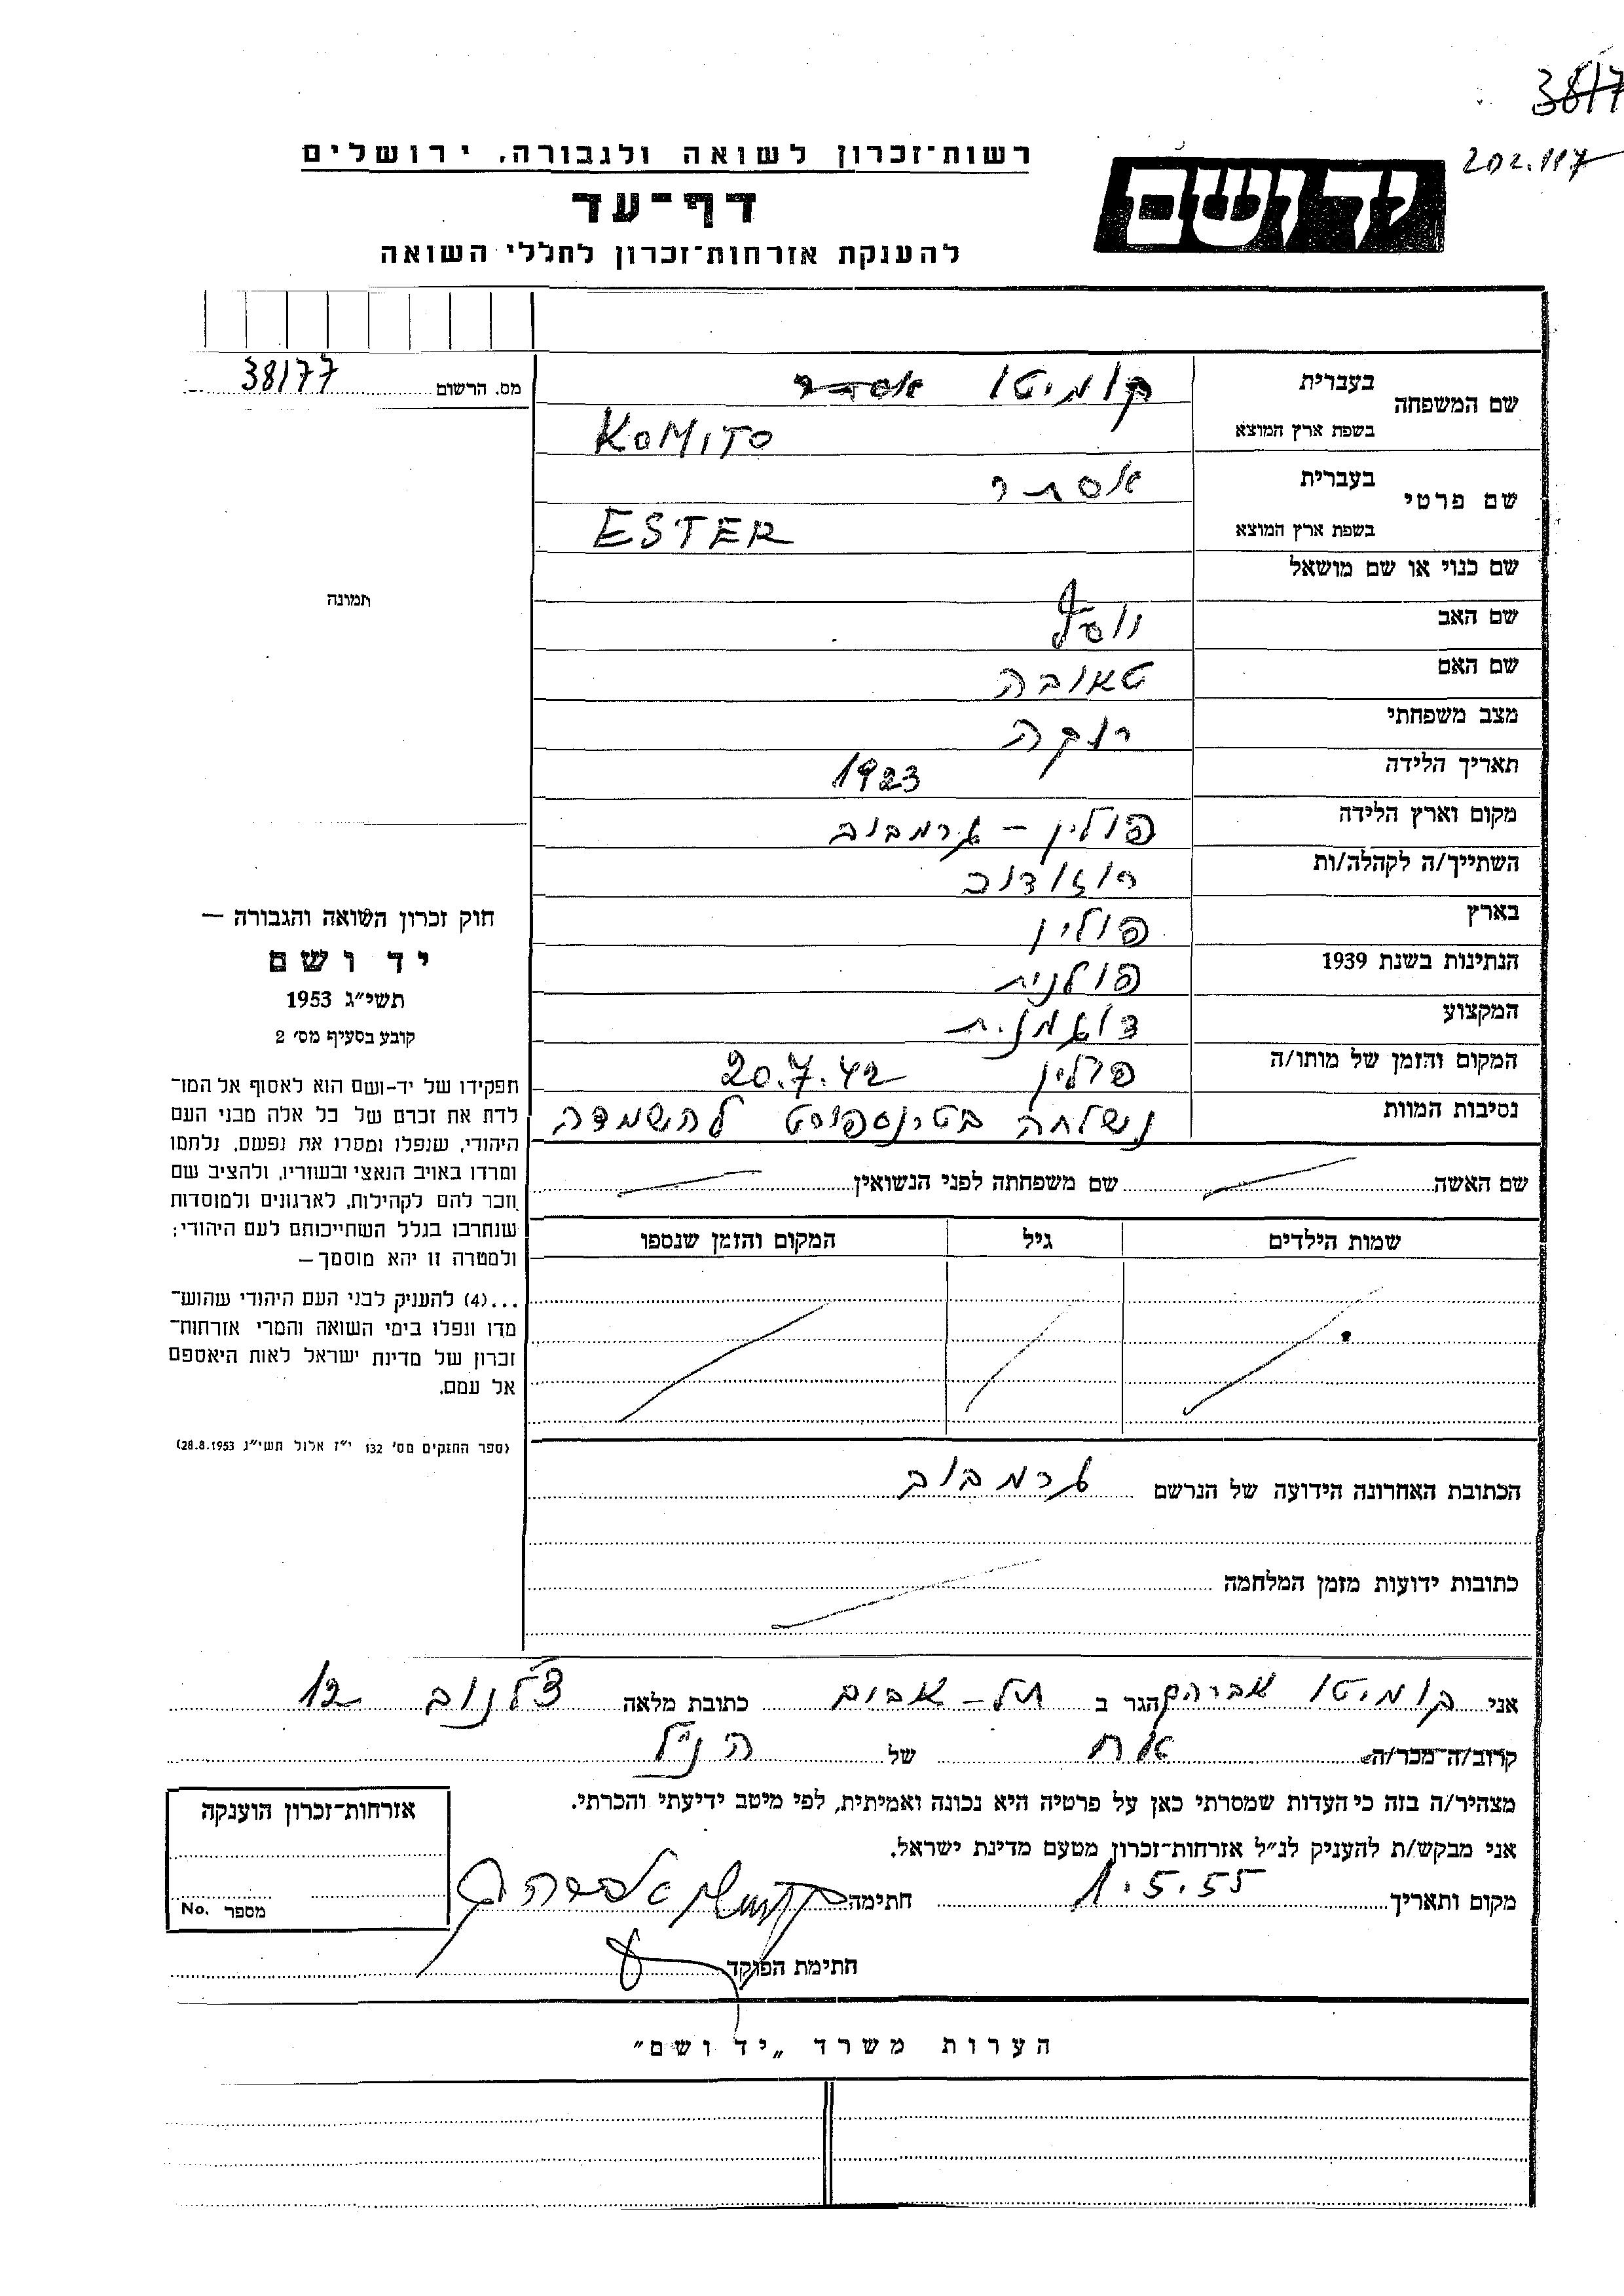 38177
202.117
רשות־זכרון לשואה ולגבורה, ירושלים
יד ושם
דף־עד
להענקת אזרחות־זכרון לחללי השואה
מס. הרשום 38177
שם המשפחה
בעברית קומיטו אסתר
בשפת ארץ המוצא KOMITO
שם פרטי
בעברית אסתר
בשפת ארץ המוצא ESTER
שם כנוי או שם מושאל
שם האב יוסף
שם האם טאובה
מצב משפחתי רוקה
תאריך הלידה 1923
מקום וארץ הלידה פולין – גרמבוב
השתייך/ה לקהלה/ות רוזודוב
בארץ פולין
הנתינות בשנת 1939 פולנית
המקצוע
המקום והזמן של מותו/ה פולין 20.7.42
נסיבות המוות נשלחה בטרנספורט להשמדה
שם האשה שם משפחתה לפני הנשואין
שמות הילדים גיל המקום והזמן שנספו
הכתובת האחרונה הידועה של הנרשם גרמבוב
כתובות ידועות מזמן המלחמה
תמונה
חוק זכרון השואה והגבורה —
יד ושם
תשי״ג 1953
קובע בסעיף מס׳ 2
תפקידו של יד-ושם הוא לאסוף אל המו־
לדת את זכרם של כל אלה מבני העם
היהודי, שנפלו ומסרו את נפשם, נלחמו
ומרדו באויב הנאצי ובעוזריו, ולהציב שם
וזכר להם לקהילות, לארגונים ולמוסדות
שנחרבו בגלל השתייכותם לעם היהודי;
ולמטרה זו יהא מוסמך—
...(4) להעניק לבני העם היהודי שהוש־
מדו ונפלו בימי השואה והמרי אזרחות־
זכרון של מדינת ישראל לאות היאספם
אל עמם.
(ספר החוקים מס׳ 132 י״ז אלול תשי״ג 28.8.1953)
אני קומיטו אברהם הגר ב תל-אביב כתובת מלאה צ'לנוב 12
קרוב/ה־מכר/ה אח של הנ״ל
מצהיר/ה בזה כי העדות שמסרתי כאן על פרטיה היא נכונה ואמיתית, לפי מיטב ידיעתי והכרתי.
אני מבקש/ת להעניק לנ״ל אזרחות־זכרון מטעם מדינת ישראל.
מקום ותאריך 1.5.55 חתימה
חתימת הפוקד
אזרחות־זכרון הוענקה
מספר No.
הערות משרד „יד ושם״